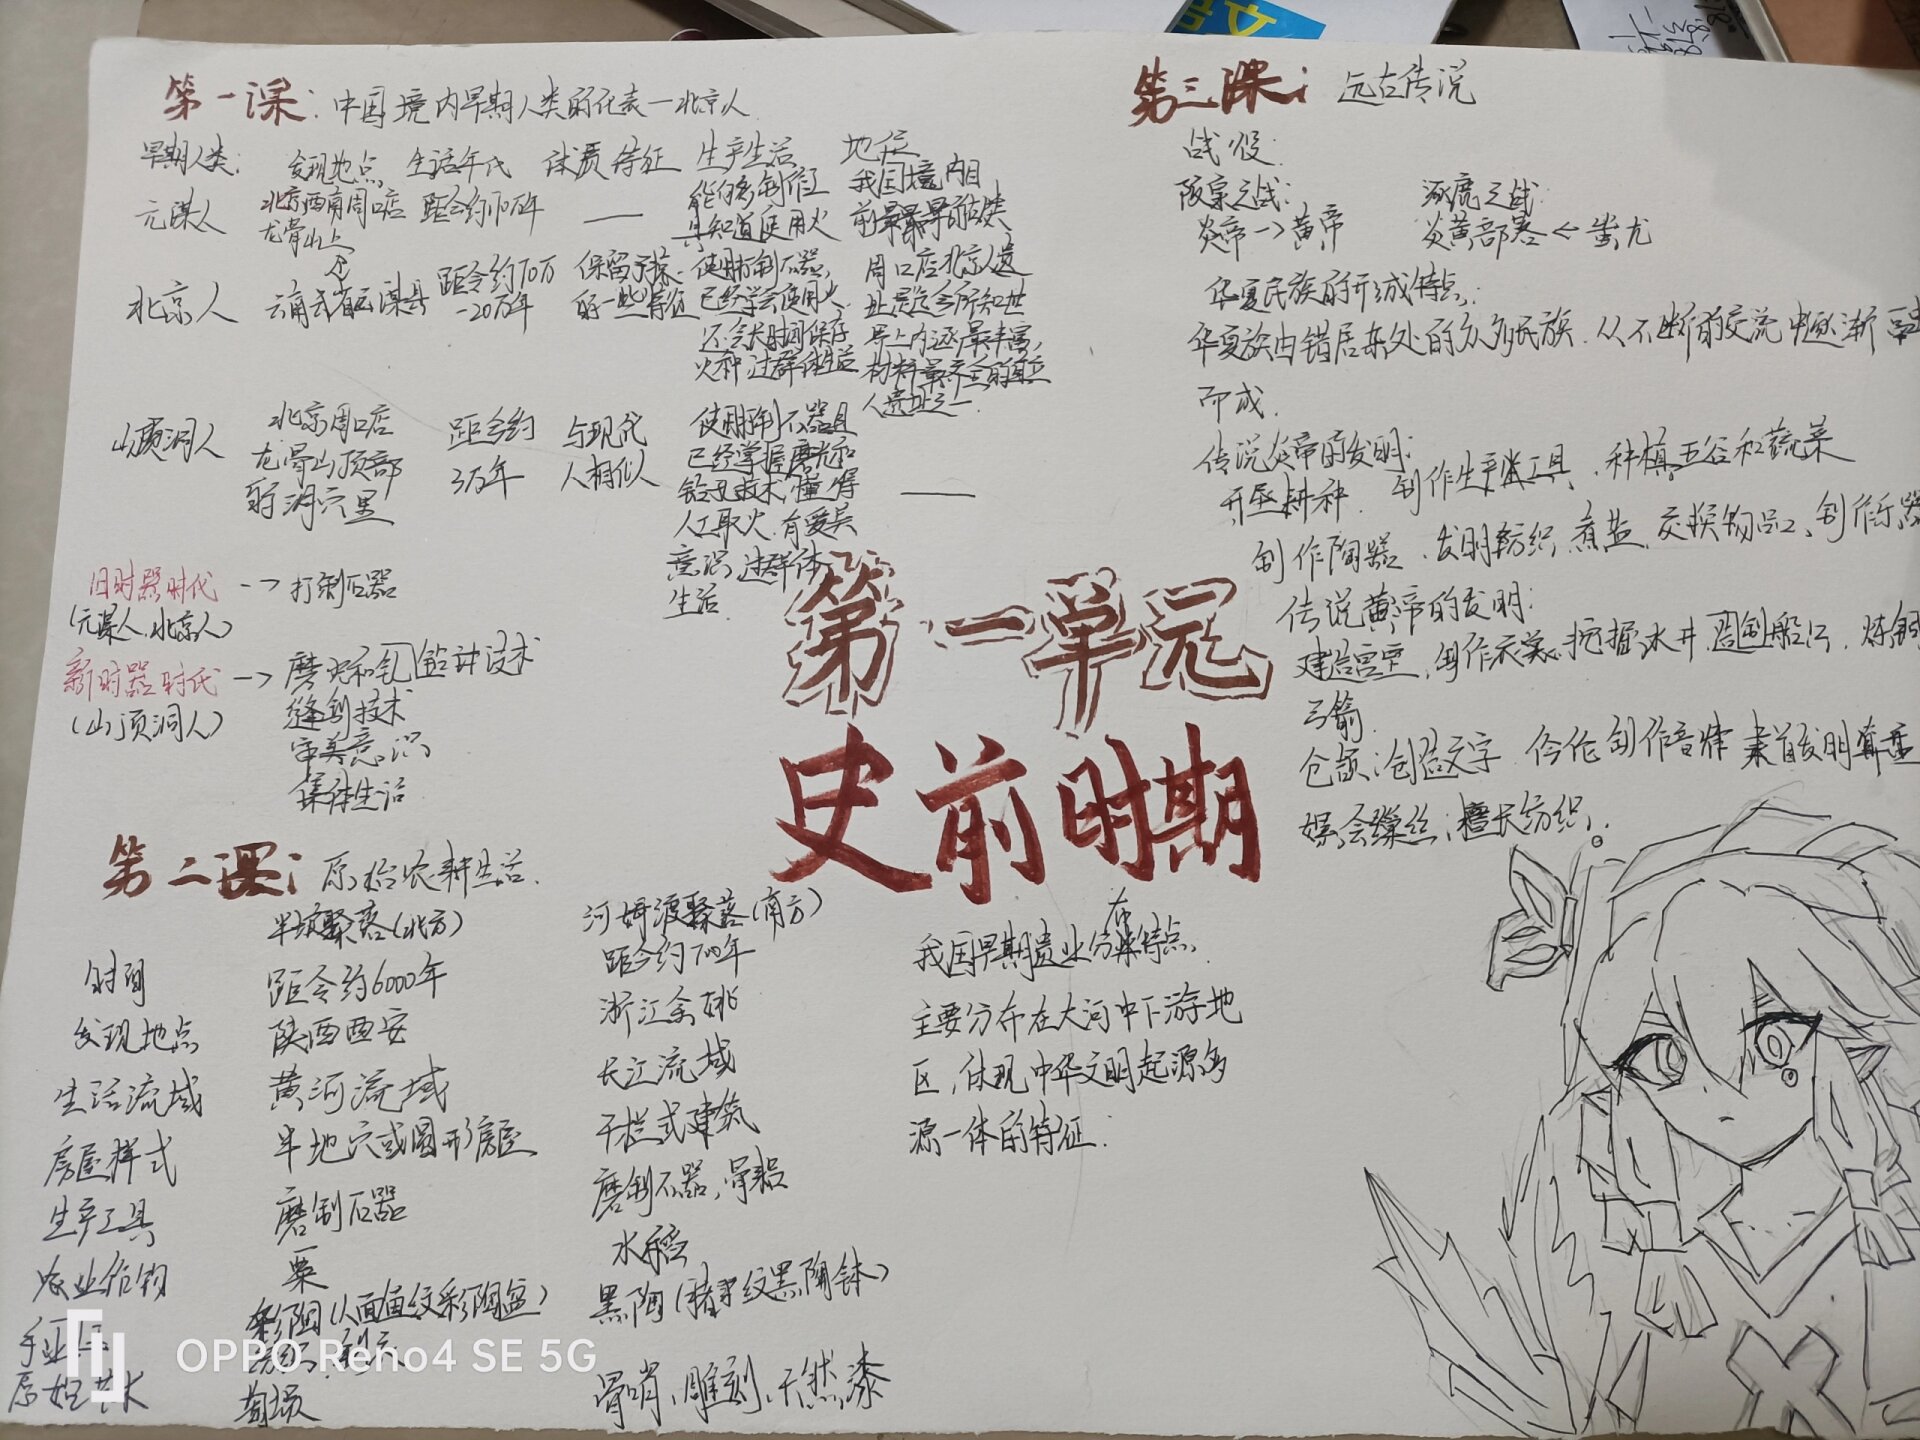 第一课：中国境内早期人类的代表—北京人
早期人类： 发现地点 生活年代 体质特征 生产生活 地位
元谋人 北京西南周口店 距今约170万年 —— 能够制作工 我国境内目
龙骨山上 具知道使用火 前最早的人类
北京人 云南省元谋县 距今约70万 保留了猿 使用打制石器, 周口店北京人遗
-20万年 的一些特征 已经学会使用火 址是迄今所知世
还会长时间保存 界上内涵最丰富,
火种,过群体生活 材料最齐全的直立
人遗址之一
山顶洞人 北京周口店 距今约 与现代 使用打制石器且
龙骨山顶部 3万年 人相似 已经掌握磨光和
的洞穴里 钻孔技术,懂得 ——
人工取火,有爱美
意识,过群体
生活
旧时器时代 → 打制石器
(元谋人、北京人)
新时器时代 → 磨光和钻孔技术
(山顶洞人) 缝制技术
审美意识
集体生活
第一单元
史前时期
第二课： 原始农耕生活
半坡聚落(北方) 河姆渡聚落(南方)
时间 距今约6000年 距今约7000年
发现地点 陕西西安 浙江余姚
生活流域 黄河流域 长江流域
房屋样式 半地穴或圆形房屋 干栏式建筑
生产工具 磨制石器 磨制石器,骨器
农业作物 粟 水稻
手工业 彩陶(人面鱼纹彩陶盆) 黑陶(猪纹黑陶钵)
纺织、制衣
原始艺术 陶埙 骨哨、雕刻、天然漆
我国早期遗业分布特点
主要分布在大河中下游地
区,体现中华文明起源多
源一体的特征.
第三课： 远古传说
战役：
阪泉之战： 涿鹿之战：
炎帝→黄帝 炎黄部落←蚩尤
华夏民族的形成特点：
华夏族由错居杂处的众多民族,从不断的交流中逐渐
而成.
传说炎帝的发明：
开垦耕种、制作生产工具、种植五谷和蔬菜
制作陶器、发明纺织、煮盐、交换物品、制作乐器
传说黄帝的发明：
建造宫室、制作衣裳、挖掘水井、制船只、炼铜
弓箭
仓颉：创造文字 伶伦制作音律 隶首发明算盘
嫘会缫丝,擅长纺织.
OPPO Reno4 SE 5G